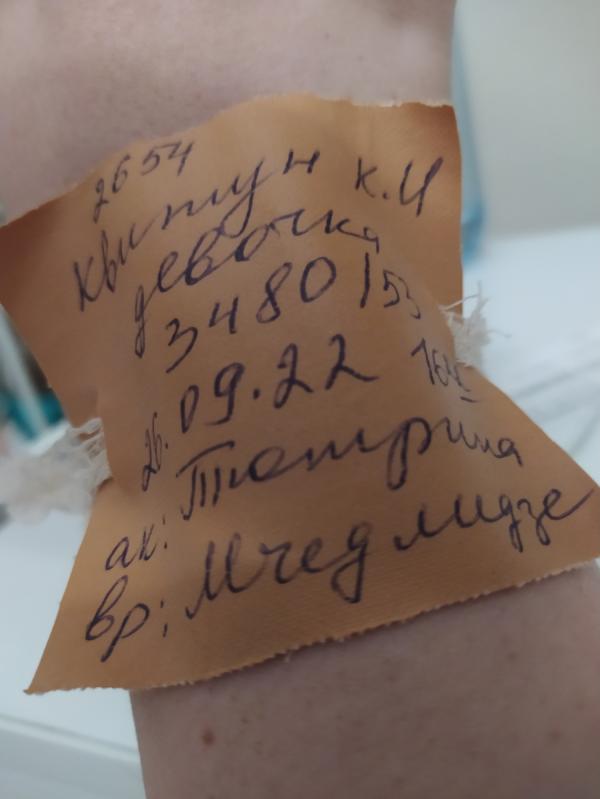 2654
Квитун К.И
девочка
3480 153
26.09.22 16
ак: Тютрина
вр: Мчедлидзе